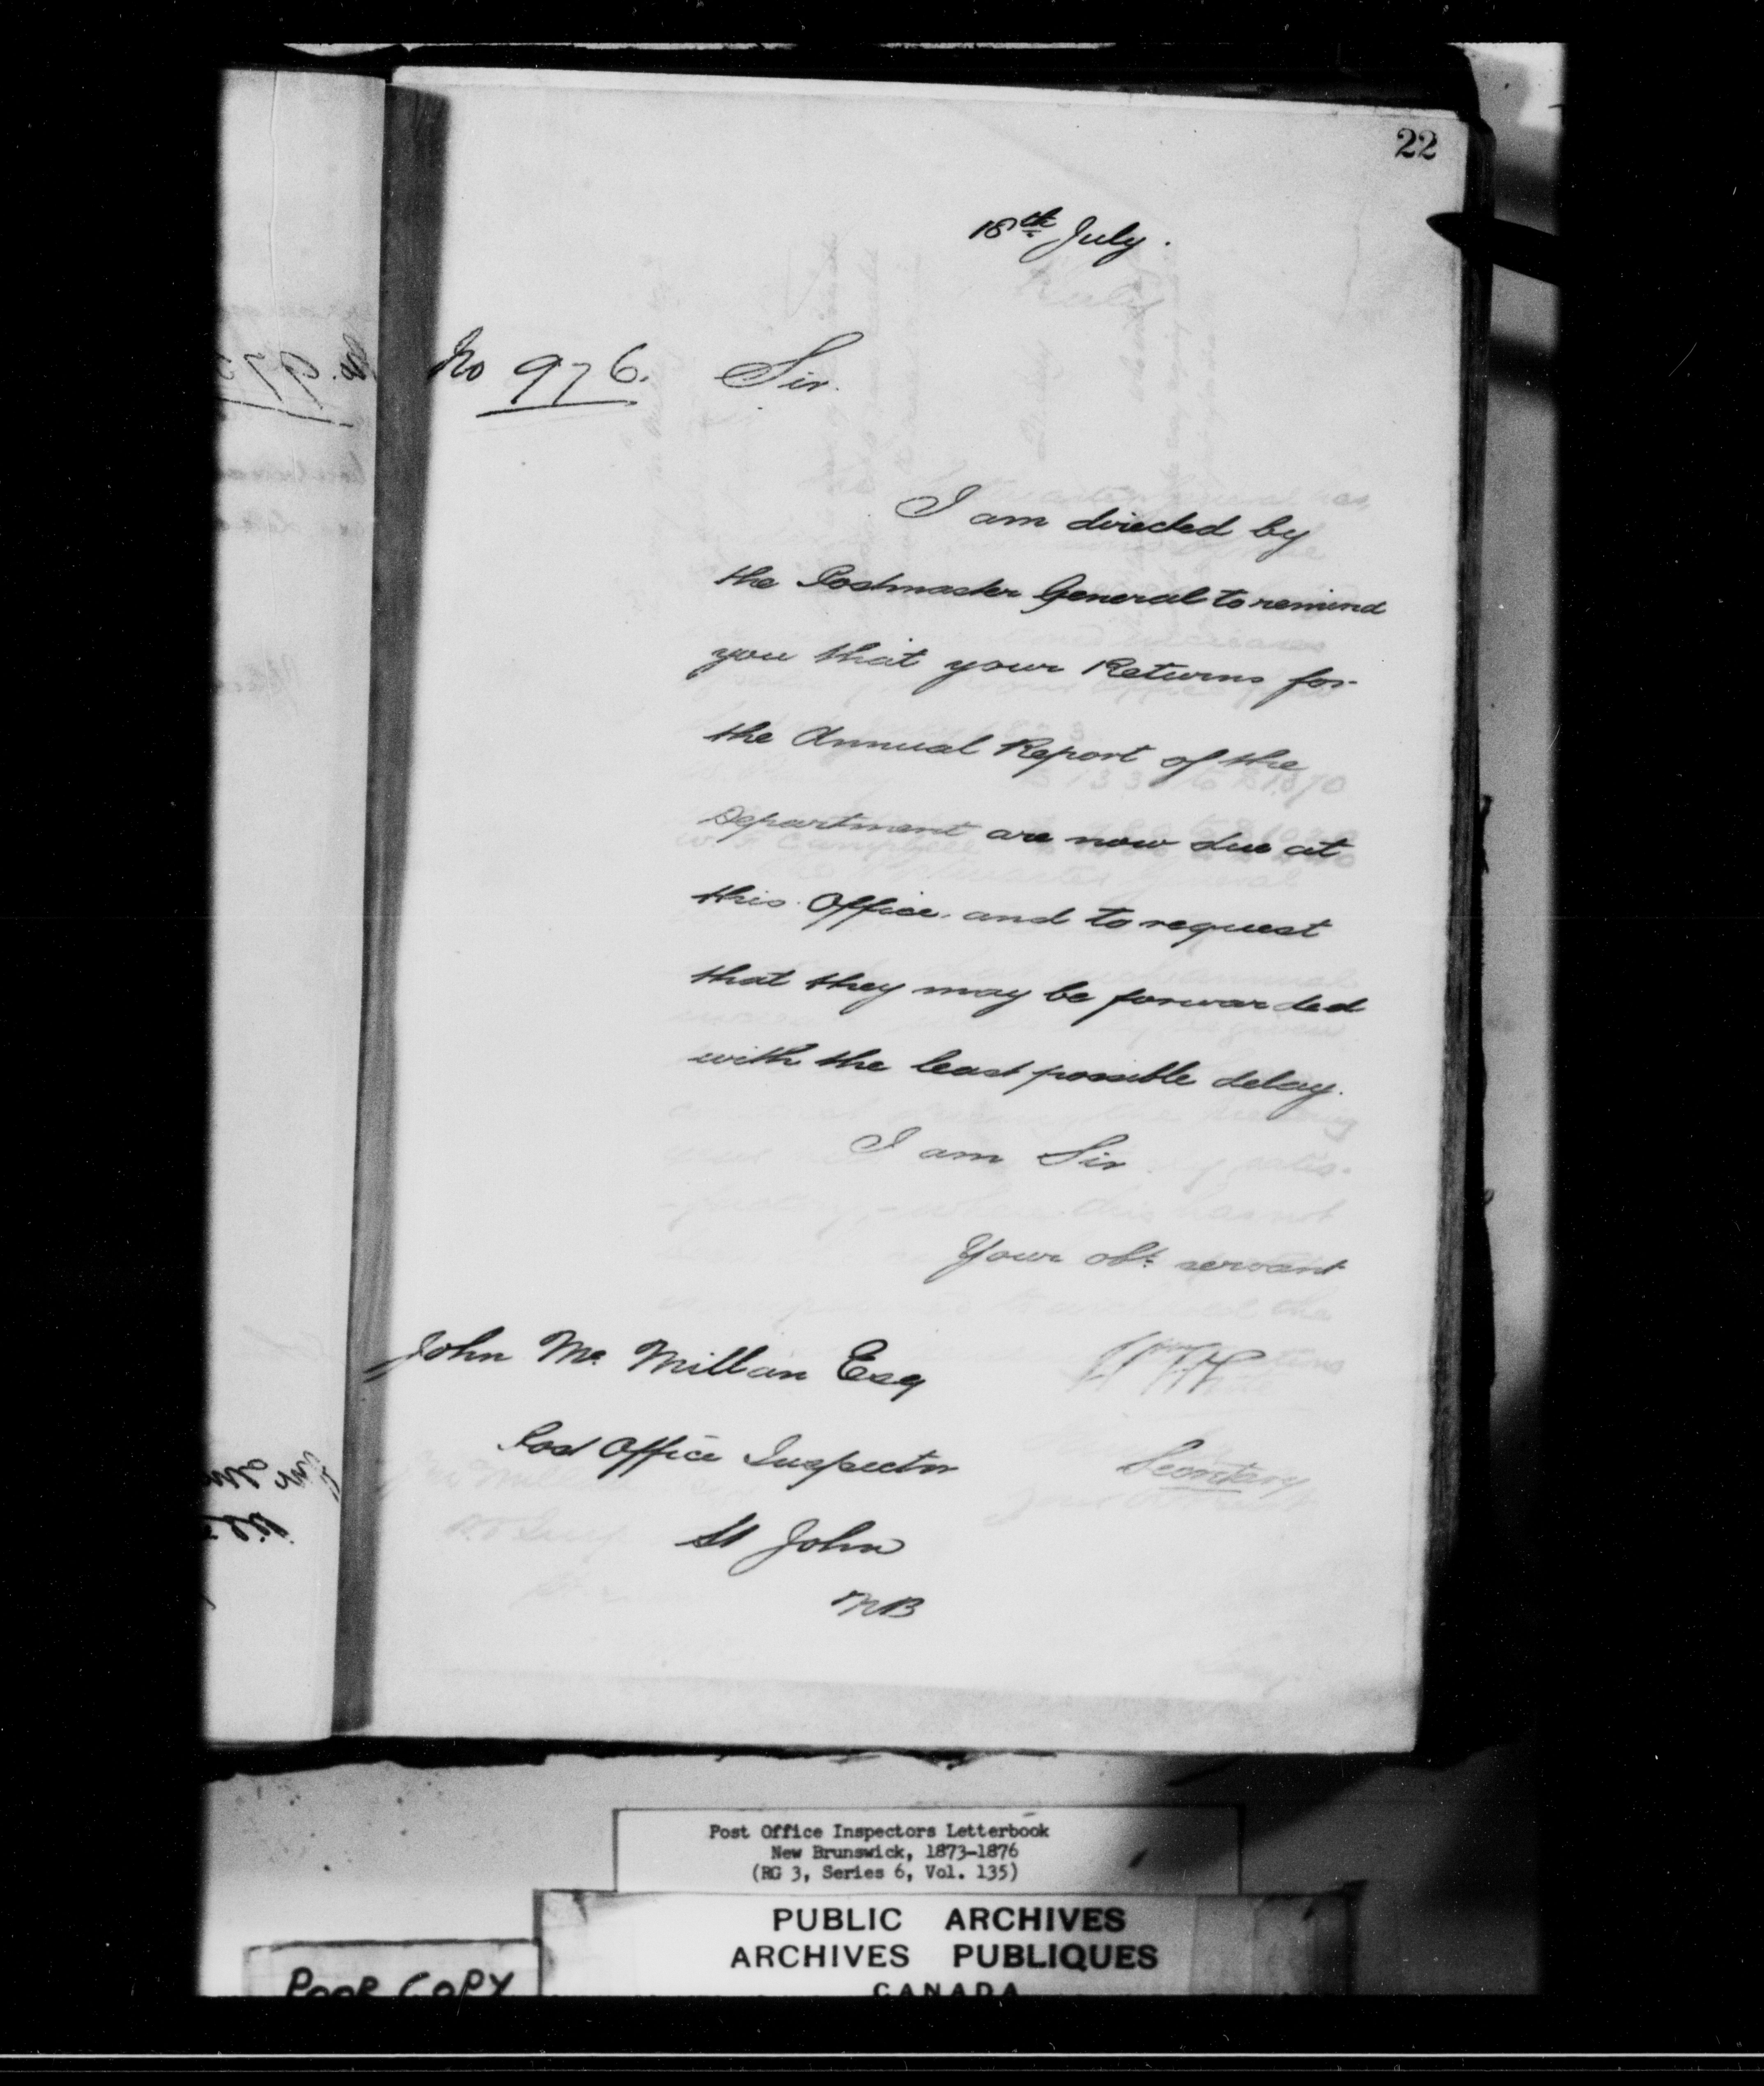 22
18th July.
No 976. Sir.
I am directed by
the Postmaster General to remind
you that your Returns for
the Annual Report of the
Department are now due at
this Office. and to request
that they may be forwarded
with the least possible delay.
I am Sir
Your obt. servant
John Mc Millan Esq
Secretary
Post Office Inspector
St John
NB
Post Office Inspectors Letterbook
New Brunswick, 1873-1876
(RG 3, Series 6, Vol. 135)
PUBLIC ARCHIVES
ARCHIVES PUBLIQUES
CANADA
POOR COPY